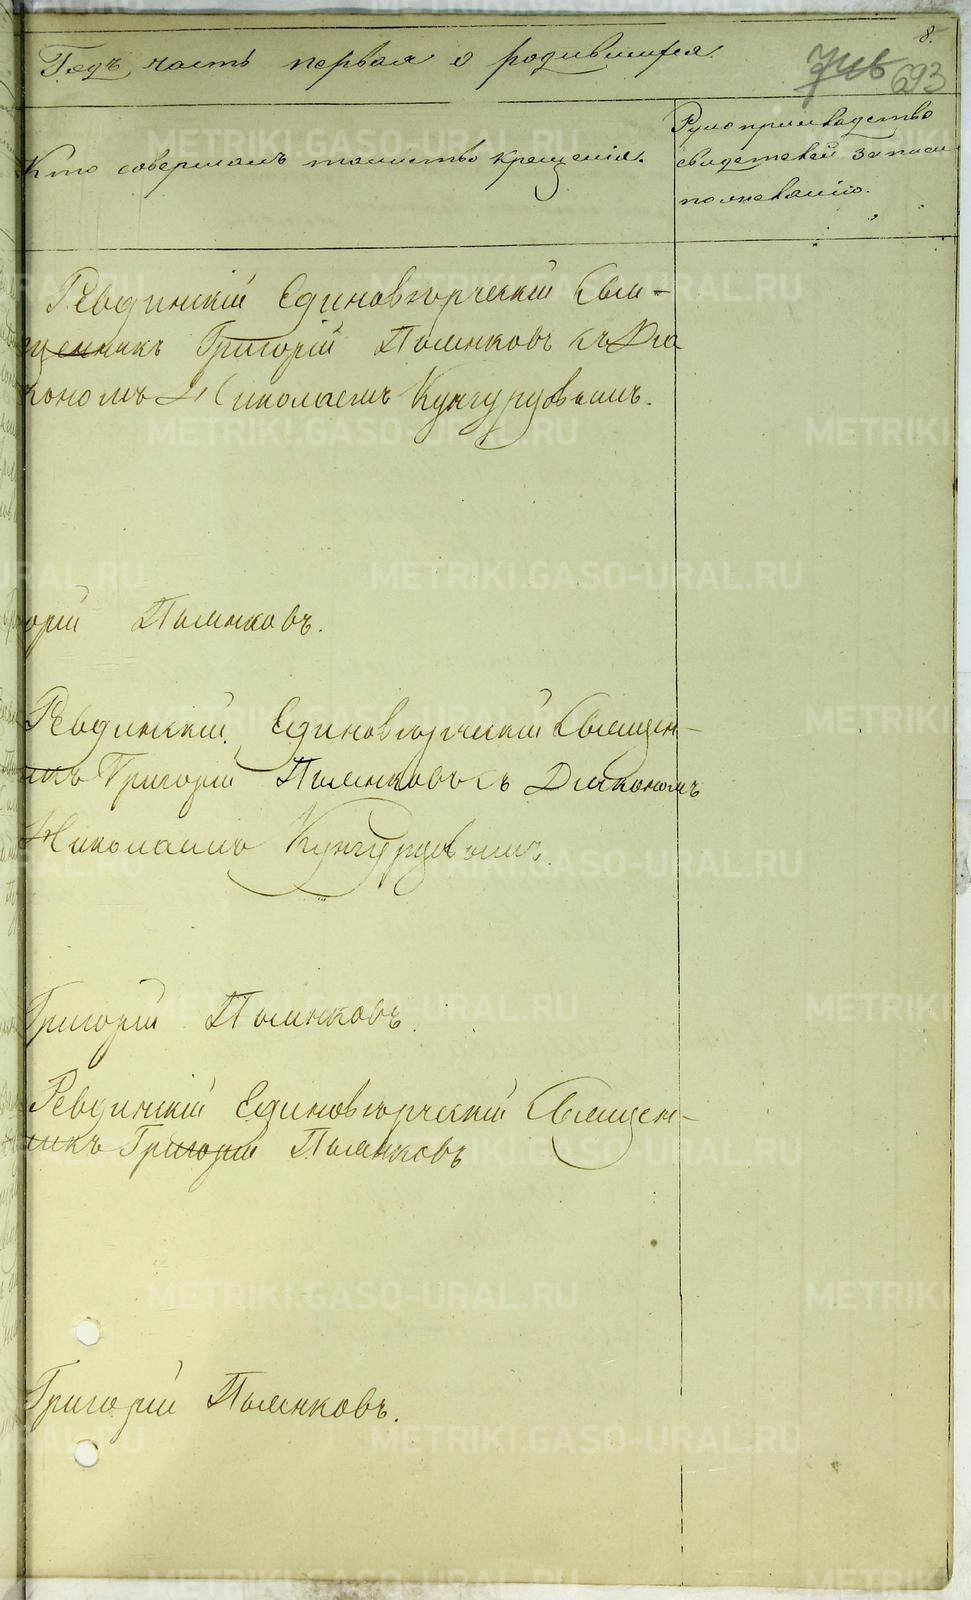 8.
693
Годъ, часть первая о родившихся.
Кто совершалъ таинство крещенія.
Рукоприкладство
свидетелей записи
по желанію.
Ревдинскій Единоверческій Свя-
щенникъ Григорій Пьянковъ съ Диа
кономъ Николаемъ Кунгуровымъ.
орій Пьянковъ.
Ревдинскій Единоверческій Священ-
никъ Григорій Пьянковъ съ Диакономъ
Николаемъ Кунгуровымъ.
Григорій Пьянковъ.
Ревдинскій Единоверческій Священ-
никъ Григорій Пьянковъ
Григорій Пьянковъ.
METRIKI.GASO-URAL.RU